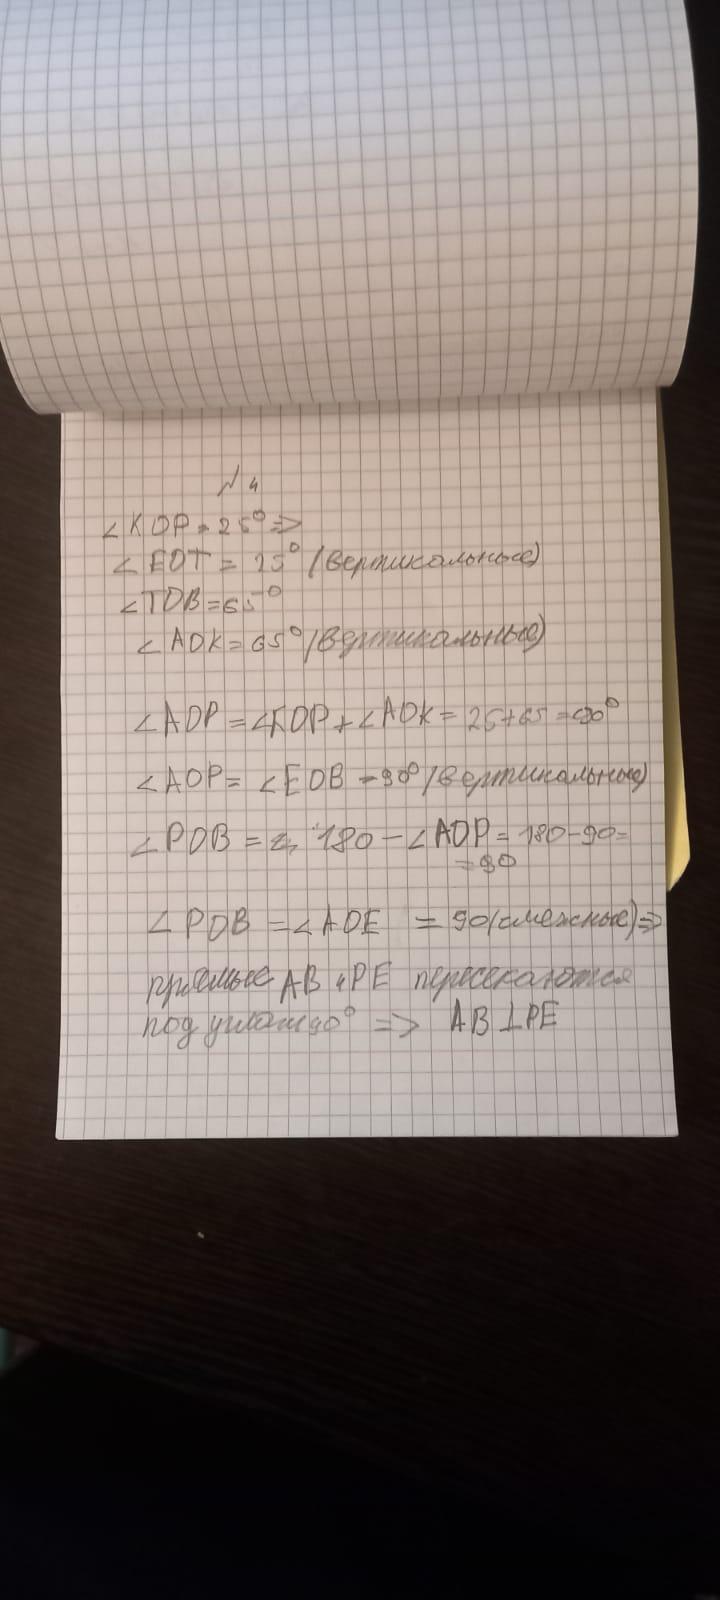 № 4
∠KOP = 25° =>
∠EOT = 25° (вертикальные)
∠TOB = 65°
∠AOK = 65° (вертикальные)
∠AOP = ∠KOP + ∠AOK = 25+65 = 90°
∠AOP = ∠EOB = 90° (вертикальные)
∠POB = 180 - ∠AOP = 180-90=
=90
∠POB = ∠AOE = 90 (смежные) =>
прямые AB и PE пересекаются
под углом 90° => AB ⊥ PE